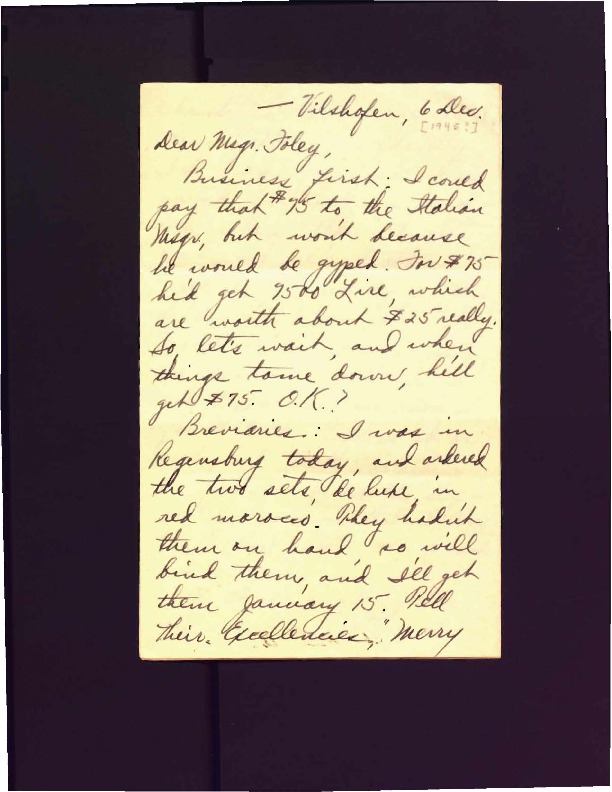 — Vilshofen, 6 Dec.
[1945?]
Dear Msgr. Foley,
Business first: I could
pay that $75 to the Italian
Msgr, but won't because
he would be gyped. For $75
he'd get 7500 Lire, which
are worth about $25 really.
So, let's wait, and when
things tame down, he'll
get $75. O.K.?
Breviaries: I was in
Regensburg today, and ordered
the two sets, de luxe, in
red morocco. They hadn't
them on hand, so will
bind them, and I'll get
them January 15. Tell
Their Excellencies, "Merry